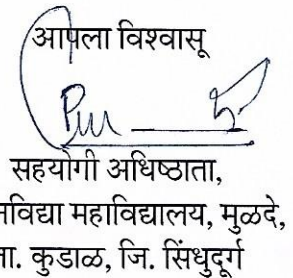 आपला विश्वासू
सहयोगी अधिष्ठाता,
महाविद्यालय, मुळदे,
कुडाळ, जि. सिंधुदूर्ग